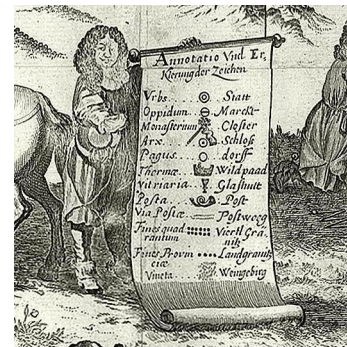 Annotatio Vnd Er,
Klerung der Zeichen
Vrbs.... Statt
Oppidum.. Marckt
Monasterium Closter
Arx.... Schloß
Pagus... dorff
Thermæ.. Wildpaad
Vitriaria.. Glashutt
Posta.. Post
Via Postæ Postweeg
Fines quad Viertl Grä
rantum nitz
Fines Provin Landgranitz
ciæ
Vineta Weingebirg